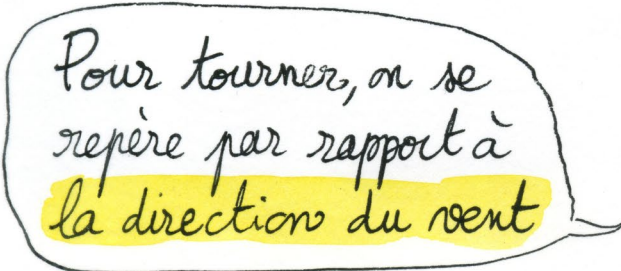 Pour tourner, on se
repère par rapport à
la direction du vent